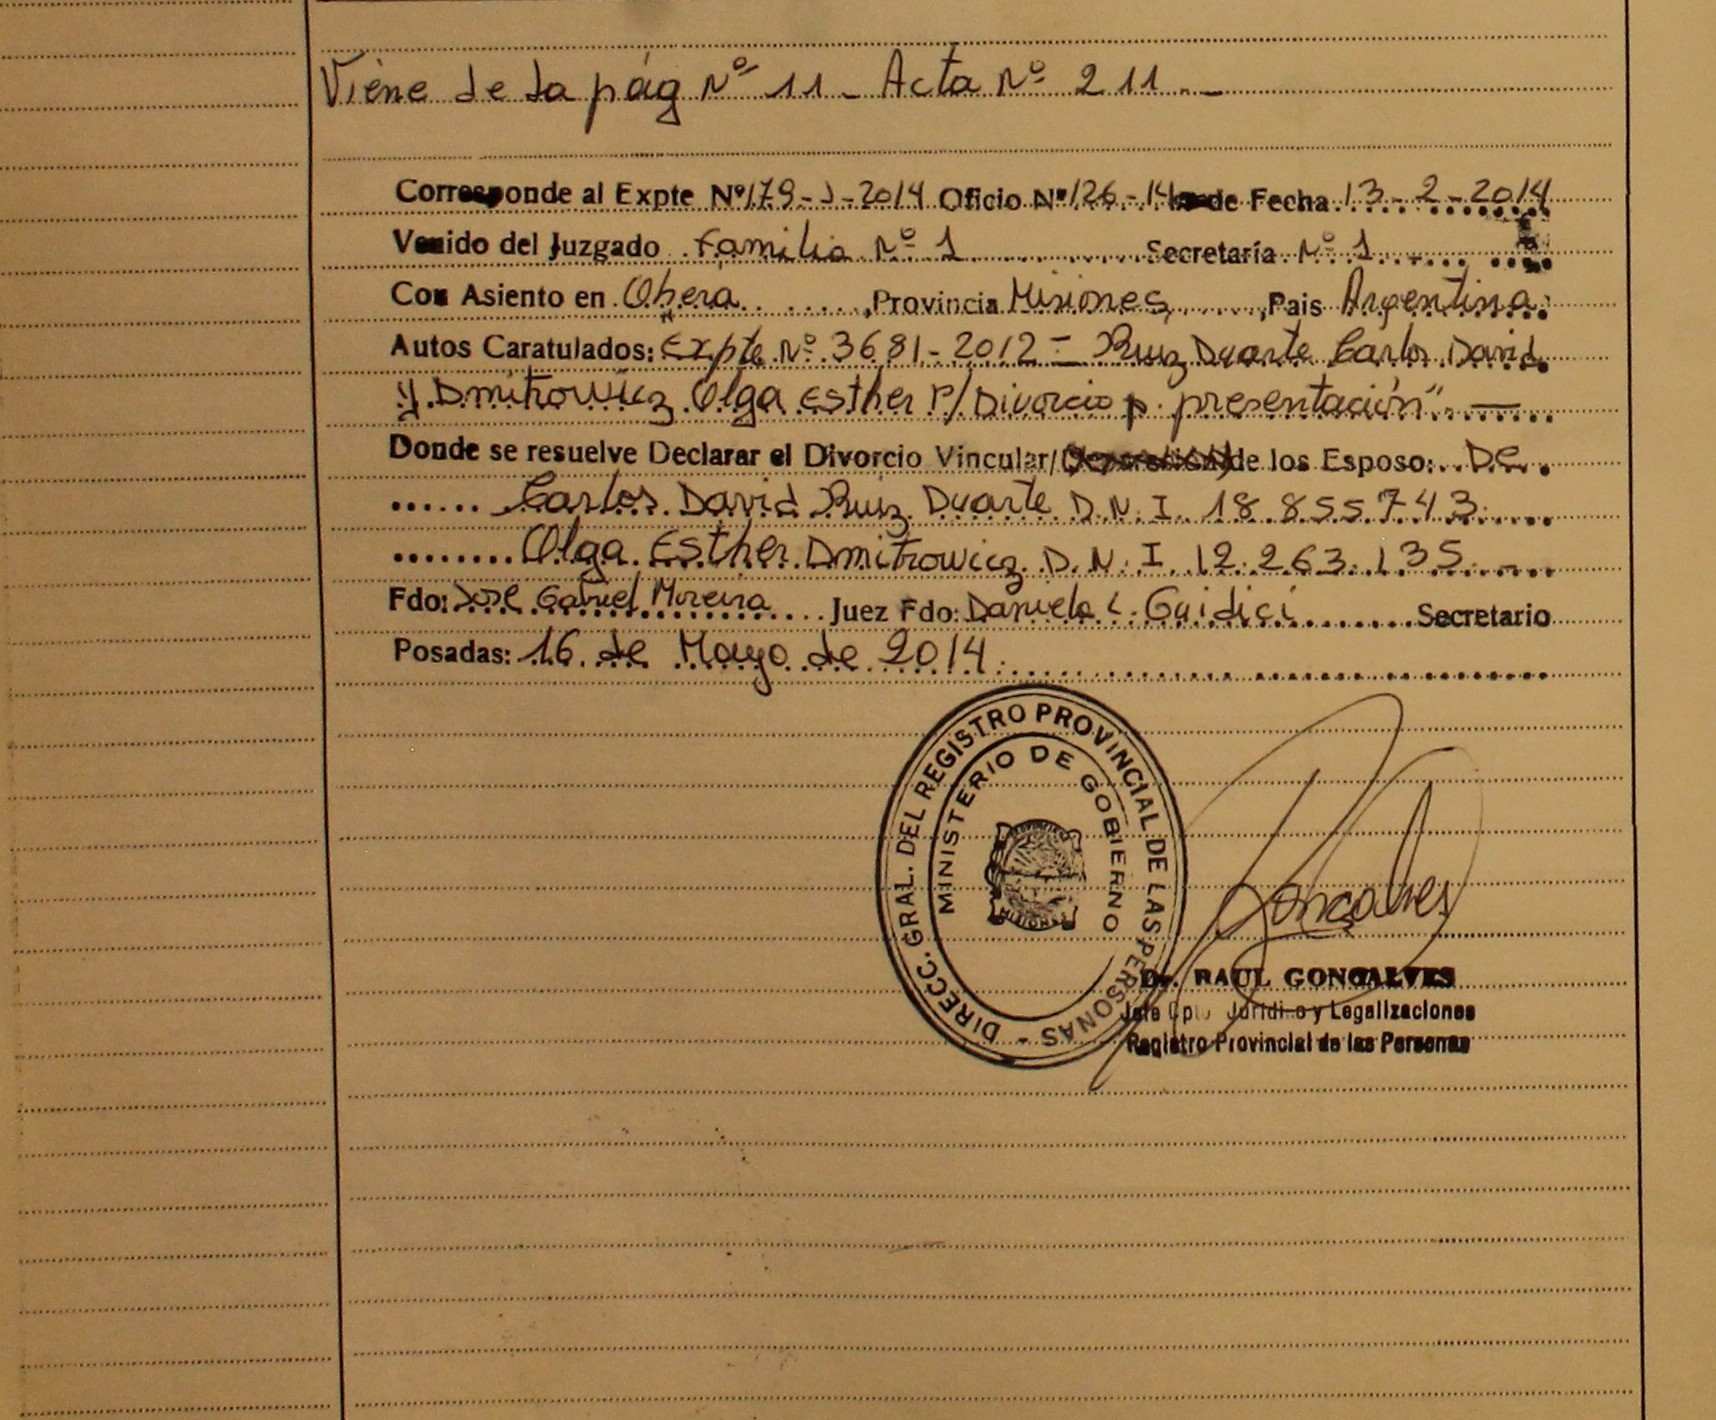 Viene de la pág Nº 11 - Acta Nº 211.-
Corresponde al Expte Nº 179-J-2014 Oficio Nº 126-14 de Fecha 13-2-2014
Venido del Juzgado Familia Nº 1 Secretaría Nº 1
Con Asiento en Obera, Provincia Misiones, Pais Argentina
Autos Caratulados: Expte Nº 3681-2012 = Ruiz Duarte Carlos David
y Dmitrowicz Olga Esther P/ Divorcio p. presentación". —
Donde se resuelve Declarar el Divorcio Vincular/ de los Esposo: De
Carlos David Ruiz Duarte D.N.I 18.855.743
Olga Esther Dmitrowicz D.N.I 12.263.135
Fdo: José Gabriel Moreira Juez Fdo: Daniela L. Guidici Secretario
Posadas: 16 de Mayo de 2014.
DIRECC. GRAL. DEL REGISTRO PROVINCIAL DE LAS PERSONAS -
MINISTERIO DE GOBIERNO
MISIONES
Goncalves
Dr. RAUL GONCALVES
Jefe Dpto Juridico y Legalizaciones
Registro Provincial de las Personas